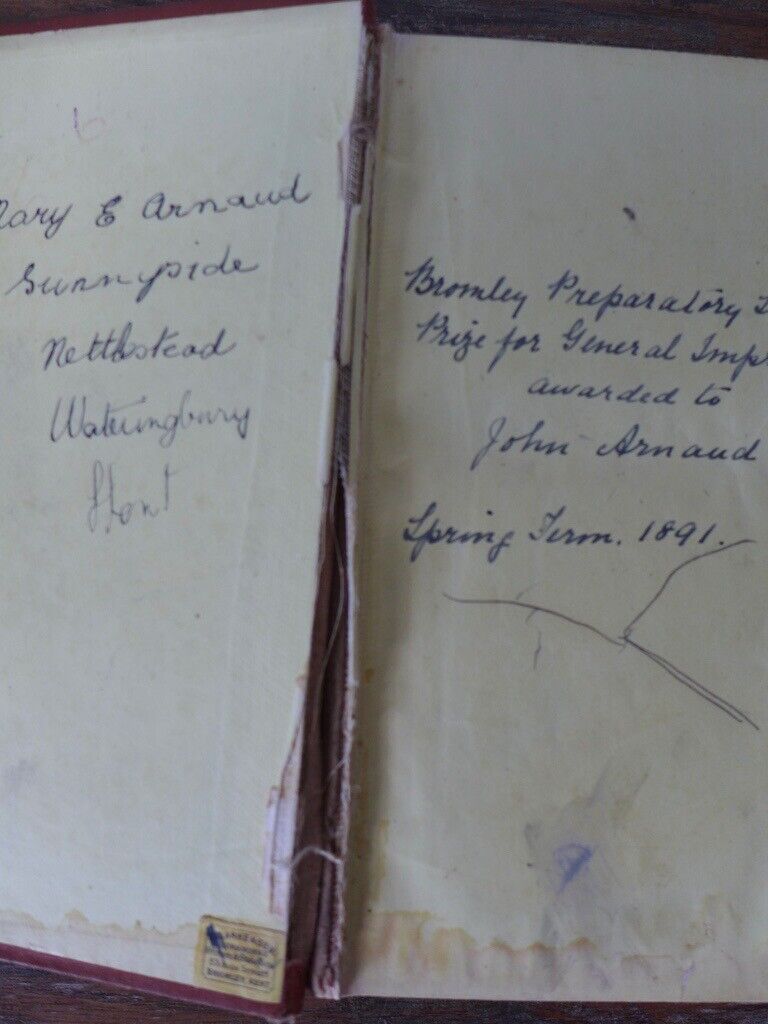 Mary E Arnaud
Sunnyside
Nettlestead
Wateringbury
Bromley Preparatory
Prize for General Impr
awarded to
John Arnaud
Spring Term. 1891.